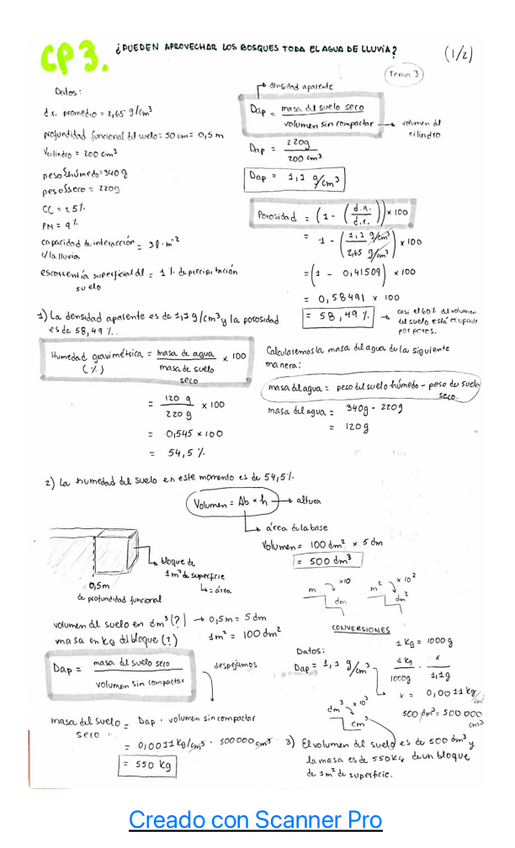 CP3. ¿PUEDEN APROVECHAR LOS BOSQUES TODA EL AGUA DE LLUVIA? (1/2)
Tema 3
Datos:
d.r. promedio = 2,65 g/cm³
profundidad funcional del suelo = 50 cm = 0,5 m
Vcilindro = 200 cm³
peso shúmedo = 340 g
peso sseco = 220g
CC = 25%
PM = 9%
capacidad de interacción = 3 l · m⁻²
c/la lluvia
escorrentía superficial del = 1% de precipitación
suelo
densidad aparente
Dap = masa del suelo seco
volumen sin compactar → volumen del
cilindro
Dap = 220g
200 cm³
Dap = 1,1 g/cm³
Porosidad = (1 - (d.a./d.r.)) × 100
= 1 - (1,1 g/cm³ / 2,65 g/cm³) × 100
= (1 - 0,41509) × 100
= 0,58491 × 100
= 58,49% → casi el 60% del volumen
del suelo está ocupado
por poros.
1) La densidad aparente es de 1,1 g/cm³ y la porosidad
es de 58,49%.
Humedad gravimétrica = masa de agua × 100
(%) masa de suelo
seco
= 120 g × 100
220 g
= 0,545 × 100
= 54,5%
Calcularemos la masa del agua de la siguiente
manera:
masa del agua = peso del suelo húmedo - peso de suelo
seco.
masa del agua = 340g - 220g
= 120g
2) La humedad del suelo en este momento es de 54,5%.
Volumen = Ab × h → altura
área de la base
Volumen = 100 dm² × 5 dm
= 500 dm³
bloque de
1m² de superficie
= área
0,5m
de profundidad funcional
m ×10 dm
m² ×10² dm²
volumen del suelo en dm³ (?) → 0,5m = 5 dm
masa en kg del bloque (?) 1m² = 100 dm²
CONVERSIONES
Dap = masa del suelo seco
volumen sin compactar
despejamos
Datos:
Dap = 1,1 g/cm³
1 kg = 1000 g
1 kg · x
1000g 1,1g
x = 0,0011 kg/cm³
dm³ ×10³ cm³
500 dm³ = 500 000
cm³
masa del suelo = Dap · volumen sin compactar
seco
= 0,0011 kg/cm³ · 500000 cm³
= 550 kg
3) El volumen del suelo es de 500 dm³ y
la masa es de 550kg de un bloque
de 1m² de superficie.
Creado con Scanner Pro